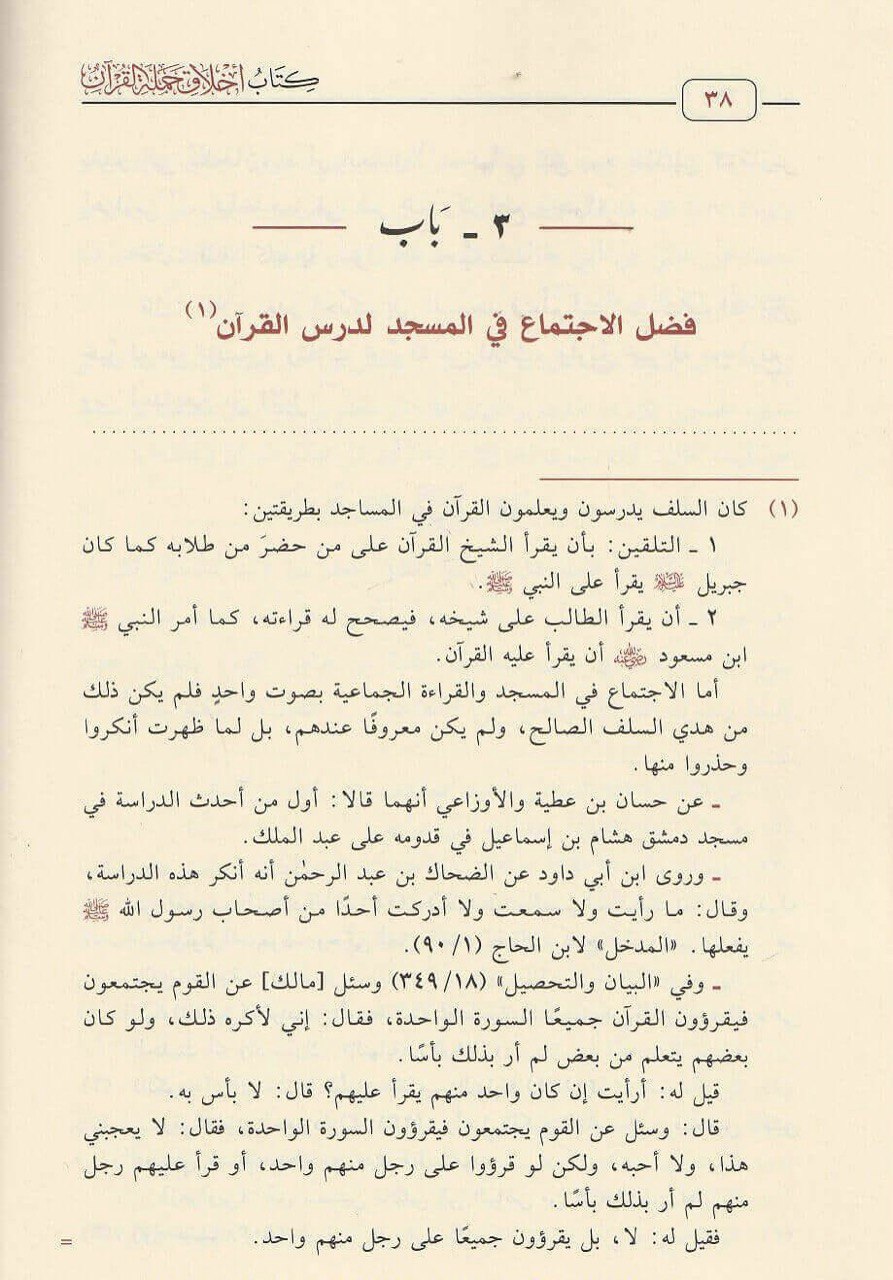 كِتَابُ أَخْلَاقِ حَمَلَةِ الْقُرْآنِ
٣٨
٣ ـ بَاب
فضل الاجتماع في المسجد لدرس القرآن(١)
(١) كان السلف يدرسون ويعلمون القرآن في المساجد بطريقتين:
١ ـ التلقين: بأن يقرأ الشيخ القرآن على من حضرَ من طلابه كما كان
جبريل عليه السلام يقرأ على النبي ﷺ.
٢ ـ أن يقرأ الطالب على شيخه، فيصحح له قراءته، كما أمر النبي ﷺ
ابن مسعود رضي الله عنه أن يقرأ عليه القرآن.
أما الاجتماع في المسجد والقراءة الجماعية بصوت واحدٍ فلم يكن ذلك
من هدي السلف الصالح، ولم يكن معروفًا عندهم، بل لما ظهرت أنكروا
وحذروا منها.
ـ عن حسان بن عطية والأوزاعي أنهما قالا: أول من أحدث الدراسة في
مسجد دمشق هشام بن إسماعيل في قدومه على عبد الملك.
ـ وروى ابن أبي داود عن الضحاك بن عبد الرحمٰن أنه أنكر هذه الدراسة،
وقال: ما رأيت ولا سمعت ولا أدركت أحدًا من أصحاب رسول الله ﷺ
يفعلها. «المدخل» لابن الحاج (١/ ٩٠).
ـ وفي «البيان والتحصيل» (١٨/ ٣٤٩) وسئل [مالك] عن القوم يجتمعون
فيقرؤون القرآن جميعًا السورة الواحدة، فقال: إني لأكره ذلك، ولو كان
بعضهم يتعلم من بعض لم أر بذلك بأسًا.
قيل له: أرأيت إن كان واحد منهم يقرأ عليهم؟ قال: لا بأس به.
قال: وسئل عن القوم يجتمعون فيقرؤون السورة الواحدة، فقال: لا يعجبني
هذا، ولا أحبه، ولكن لو قرؤوا على رجل منهم واحد، أو قرأ عليهم رجل
منهم لم أر بذلك بأسًا.
فقيل له: لا، بل يقرؤون جميعًا على رجل منهم واحد. =